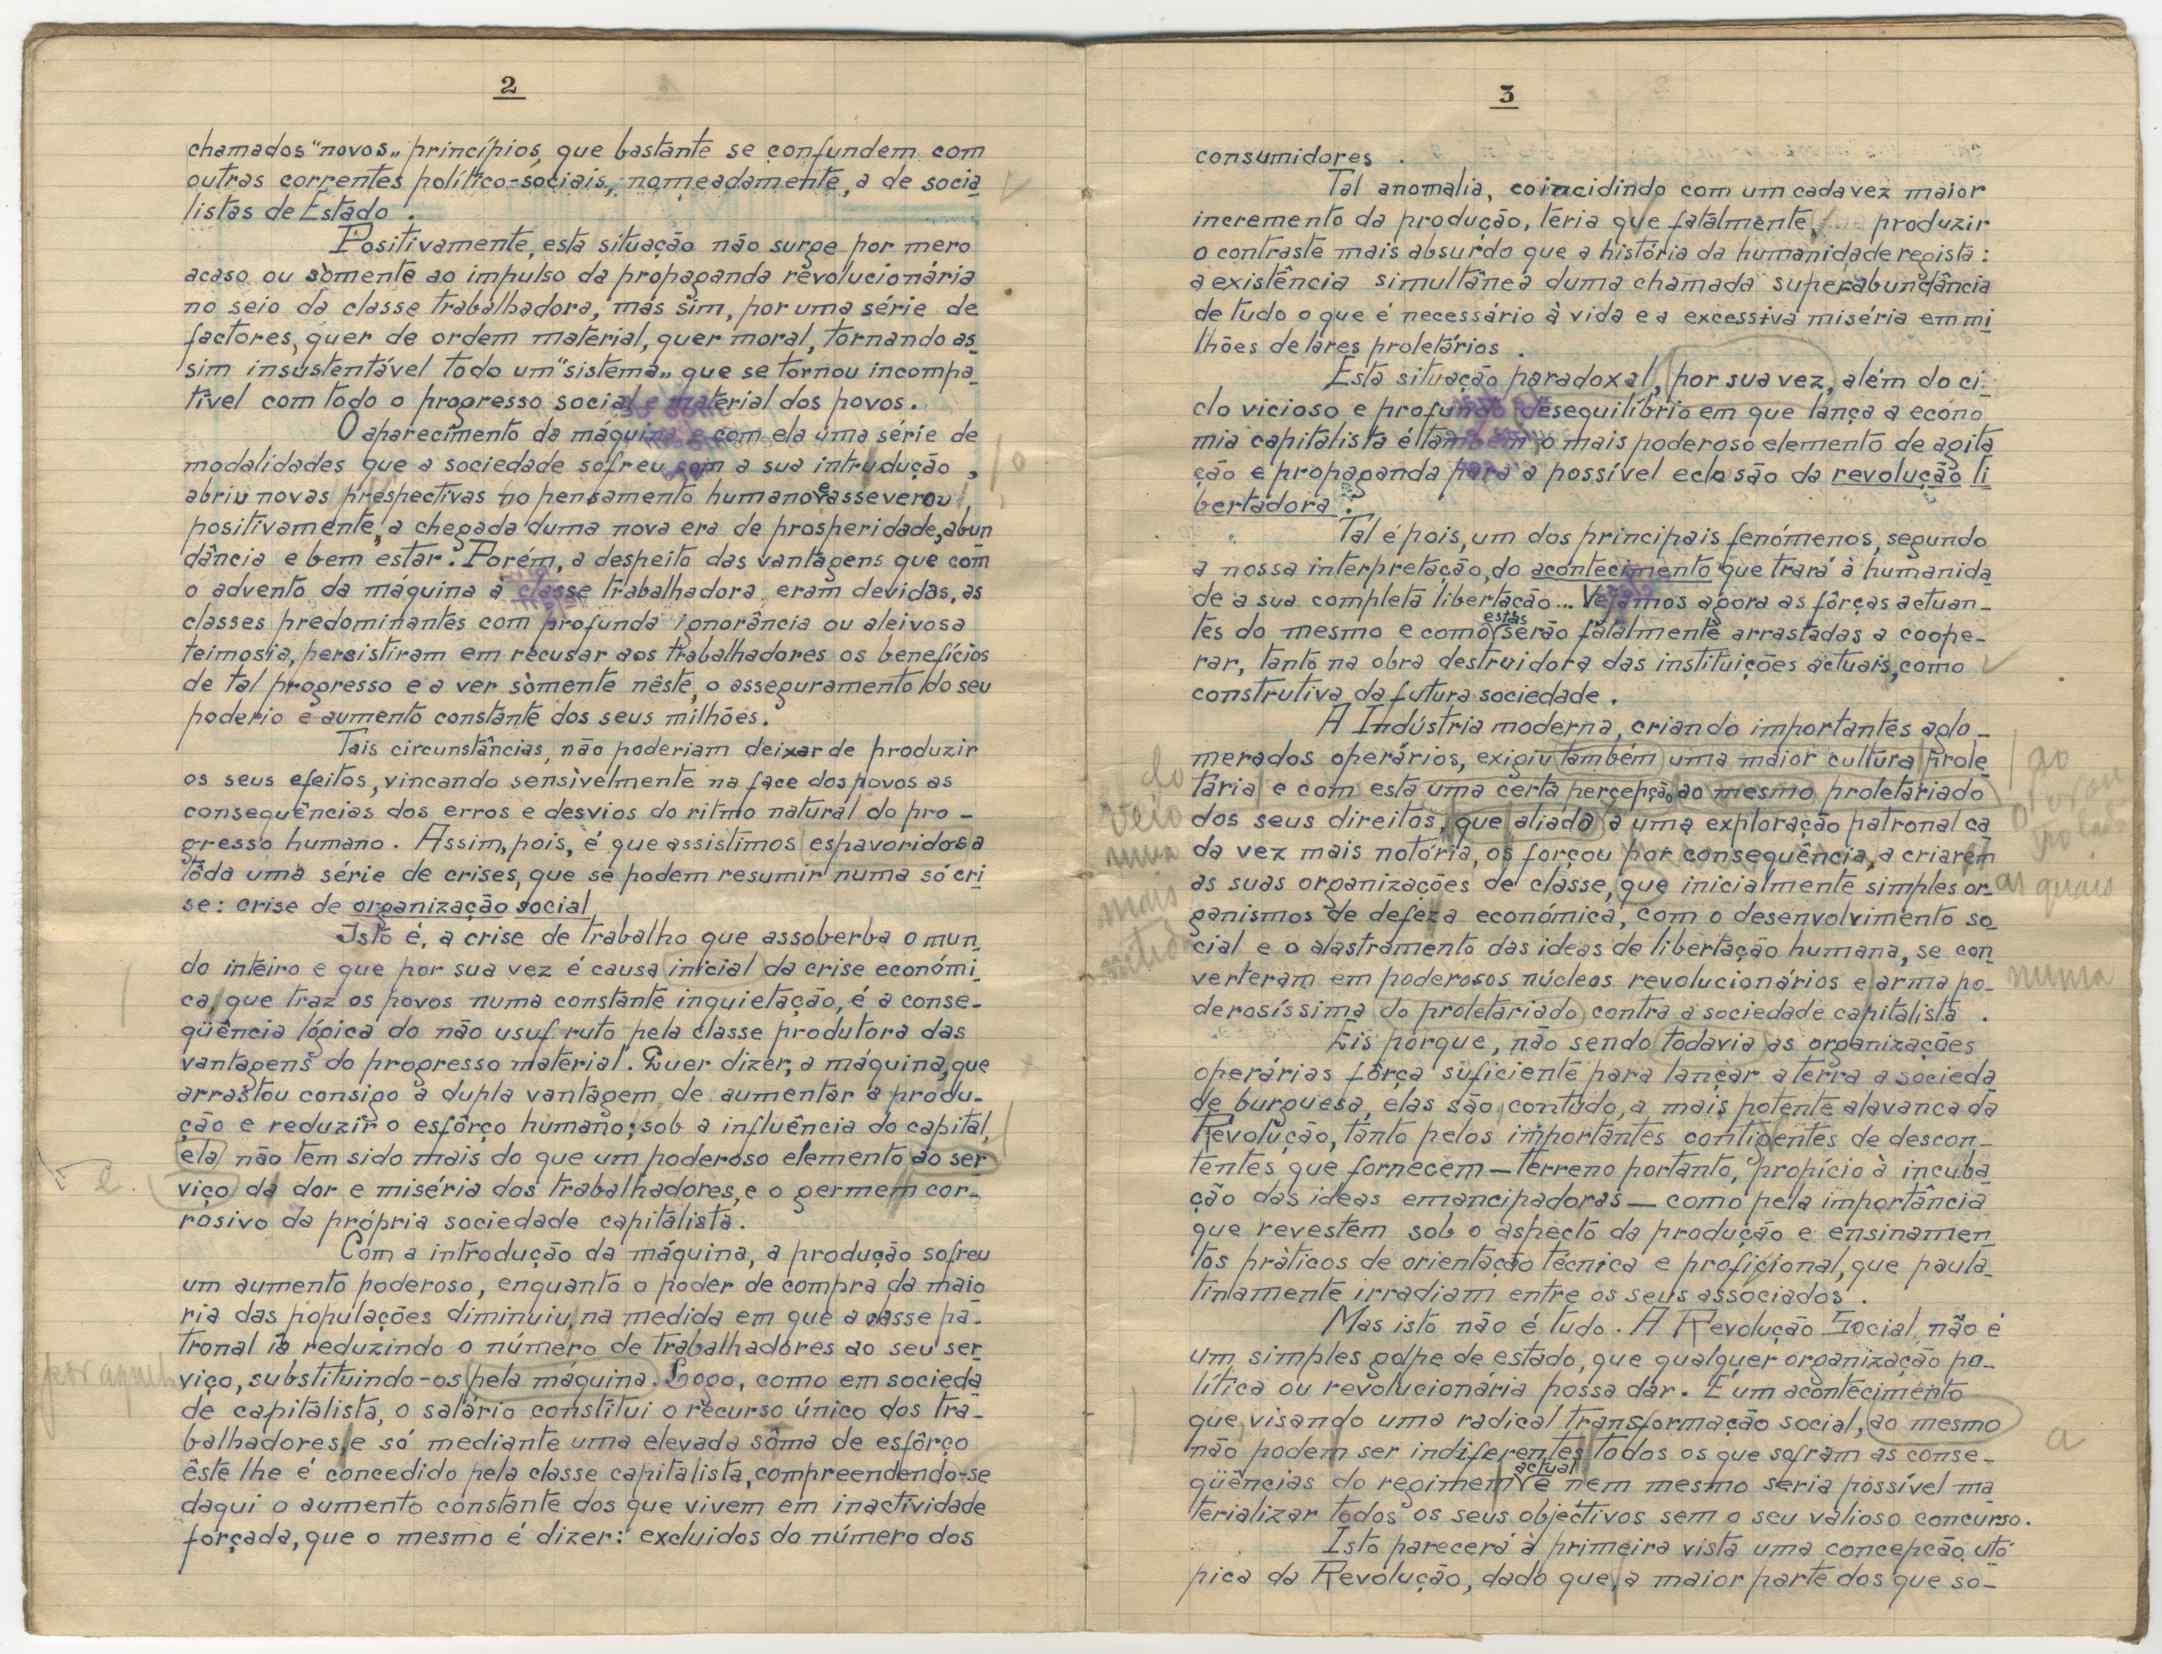 2
chamados "novos„ princípios, que bastante se confundem com
outras correntes político-sociais, nomeadamente, a de socia
listas de Estado.
Positivamente, esta situação não surge por mero
acaso ou sòmente ao impulso da propaganda revolucionária
no seio da classe trabalhadora, mas sim, por uma série de
factores, quer de ordem material, quer moral, tornando as
sim insustentável todo um "sistema„ que se tornou incompa
tível com todo o progresso social e material dos povos.
O aparecimento da máquina e com ela uma série de
modalidades que a sociedade sofreu com a sua intrudução,
abriu novas prespectivas no pensamento humano e asseverou,
positivamente, a chegada duma nova era de prosperidade, abun
dância e bem estar. Porém, a despeito das vantagens que com
o advento da máquina à classe trabalhadora eram devidas, as
classes predominantes com profunda ignorância ou aleivosa
teimosia, persistiram em recusar aos trabalhadores os benefícios
de tal progresso e a ver sòmente nêste, o asseguramento do seu
poderio e aumento constante dos seus milhões.
Tais circunstâncias, não poderiam deixar de produzir
os seus efeitos, vincando sensìvelmente na face dos povos as
consequências dos erros e desvios do ritmo natural do pro-
gresso humano. Assim, pois, é que assistimos espavoridos a
tôda uma série de crises, que se podem resumir numa só cri
se: crise de organização social
Isto é, a crise de trabalho que assoberba o mun
do inteiro e que por sua vez é causa inicial da crise económi
ca, que traz os povos numa constante inquietação, é a conse-
qüência lógica do não usufruto pela classe produtora das
vantagens do progresso material. Quer dizer, a máquina, que
arrastou consigo a dupla vantagem de aumentar a produ-
ção e reduzir o esfôrço humano; sob a influência do capital,
ela não tem sido mais do que um poderoso elemento ao ser
viço da dor e miséria dos trabalhadores, e o germem cor-
rosivo da própria sociedade capitalista.
Com a introdução da máquina, a produção sofreu
um aumento poderoso, enquanto o poder de compra da maio
ria das populações diminuiu, na medida em que a classe pa-
tronal ia reduzindo o número de trabalhadores ao seu ser
viço, substituindo-os pela máquina. Logo, como em socieda
de capitalista, o salário constitui o recurso único dos tra-
balhadores, e só mediante uma elevada sôma de esfôrço
êste lhe é concedido pela classe capitalista, compreendendo-se
daqui o aumento constante dos que vivem em inactividade
forçada, que o mesmo é dizer: excluidos do número dos
e
por aquela
3
consumidores.
Tal anomalia, coincidindo com um cada vez maior
incremento da produção, teria que fatalmente, produzir
o contraste mais absurdo que a história da humanidade regista:
a existência simultânea duma chamada superabundância
de tudo o que é necessário à vida e a excessiva miséria em mi
lhões de lares proletários.
Esta situação paradoxal, por sua vez, além do ci
clo vicioso e profundo desequilíbrio em que lança a econo
mia capitalista é também o mais poderoso elemento de agita
ção e propaganda para a possível eclosão da revolução li
bertadora.
Tal é pois, um dos principais fenómenos, segundo
a nossa interpretação, do acontecimento que trará à humanida
de a sua completa libertação... Vejamos agora as fôrças actuan-
tes do mesmo e como estas serão fatalmente arrastadas a coope-
rar, tanto na obra destruidora das instituições actuais, como
construtiva da futura sociedade.
A Indústria moderna, criando importantes aglo-
merados operários, exigiu também uma maior cultura prole
tária e com esta uma certa percepção ao mesmo proletariado
dos seus direitos, que aliada a uma exploração patronal ca
da vez mais notória, os forçou por consequência, a criarem
as suas organizações de classe, que inicialmente simples or-
ganismos de defeza económica, com o desenvolvimento so
cial e o alastramento das ideas de libertação humana, se con
verteram em poderosos núcleos revolucionários e arma po-
derosíssima do proletariado contra a sociedade capitalista.
Eis porque, não sendo todavia as organizações
operárias fôrça suficiente para lançar a terra a socieda
de burguesa, elas são, contudo, a mais potente alavanca da
Revolução, tanto pelos importantes contigentes de descon-
tentes que fornecem — terreno portanto, propício à incuba
ção das ideas emancipadoras — como pela importância
que revestem sob o aspecto da produção e ensinamen
tos pràticos de orientação técnica e proficional, que paula-
tinamente irradiam entre os seus associados.
Mas isto não é tudo. A Revolução Social não é
um simples golpe de estado, que qualquer organização po-
lítica ou revolucionária possa dar. É um acontecimento
que, visando uma radical transformação social, ao mesmo
não podem ser indiferentes todos os que sofram as conse-
qüências do regimem actual e nem mesmo seria possível ma
terializar todos os seus objectivos sem o seu valioso concurso.
Isto parecerá à primeira vista uma concepção utó
pica da Revolução, dado que, a maior parte dos que so-
do
veio
mais
ao
as quais
numa
a